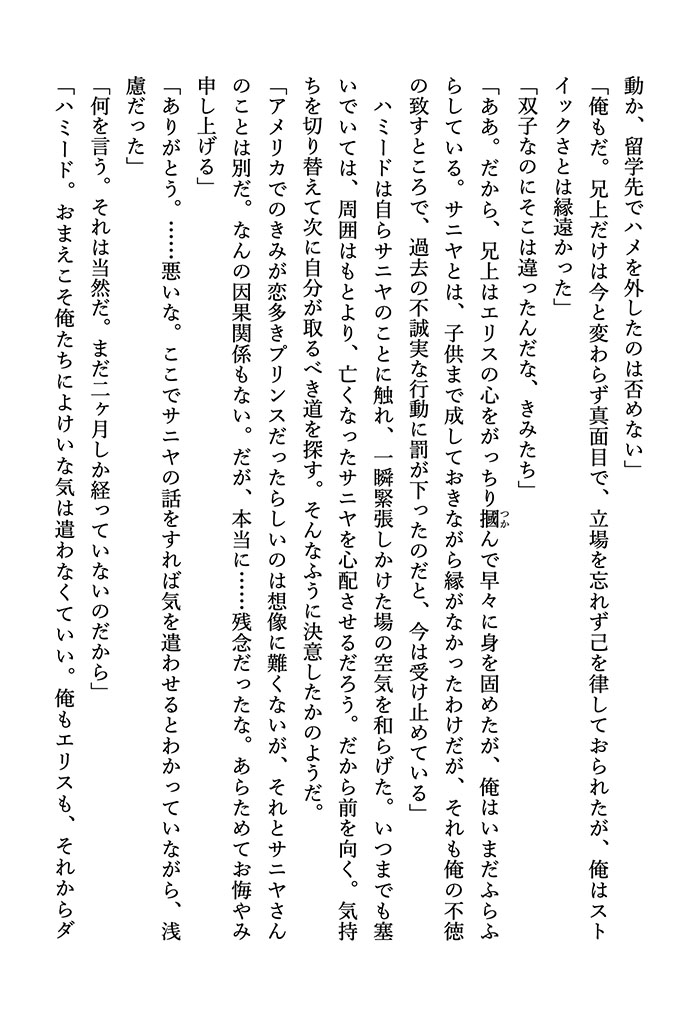 動か、留学先でハメを外したのは否めない」
「俺もだ。兄上だけは今と変わらず真面目で、立場を忘れず己を律しておられたが、俺はスト
イックさとは縁遠かった」
「双子なのにそこは違ったんだな、きみたち」
「ああ。だから、兄上はエリスの心をがっちり摑んで早々に身を固めたが、俺はいまだふらふ
らしている。サニヤとは、子供まで成しておきながら縁がなかったわけだが、それも俺の不徳
の致すところで、過去の不誠実な行動に罰が下ったのだと、今は受け止めている」
　ハミードは自らサニヤのことに触れ、一瞬緊張しかけた場の空気を和らげた。いつまでも塞
いでいては、周囲はもとより、亡くなったサニヤを心配させるだろう。だから前を向く。気持
ちを切り替えて次に自分が取るべき道を探す。そんなふうに決意したかのようだ。
「アメリカでのきみが恋多きプリンスだったらしいのは想像に難くないが、それとサニヤさん
のことは別だ。なんの因果関係もない。だが、本当に……残念だったな。あらためてお悔やみ
申し上げる」
「ありがとう。……悪いな。ここでサニヤの話をすれば気を遣わせるとわかっていながら、浅
慮だった」
「何を言う。それは当然だ。まだ二ヶ月しか経っていないのだから」
「ハミード。おまえこそ俺たちによけいな気は遣わなくていい。俺もエリスも、それからダ
つか